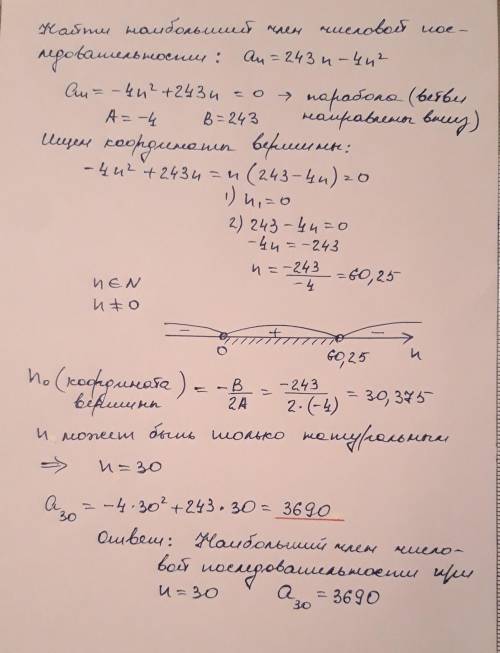 Найти наибольший член числовой пос-
ледовательности: aₙ = 243n - 4n²
aₙ = -4n² + 243n = 0 → парабола (ветви
A = -4 B = 243 направлены вниз)
Ищем координаты вершины:
-4n² + 243n = n (243 - 4n) = 0
1) n₁ = 0
2) 243 - 4n = 0
-4n = -243
n = -243/-4 = 60,25
n ∈ N
n ≠ 0
- + -
0 60,25 n
n₀ (координата вершины) = -B/2A = -243/2·(-4) = 30,375
n может быть только натуральным
⇒ n = 30
a₃₀ = -4·30² + 243·30 = 3690
Ответ: Наибольший член число-
вой последовательности при
n = 30 a₃₀ = 3690